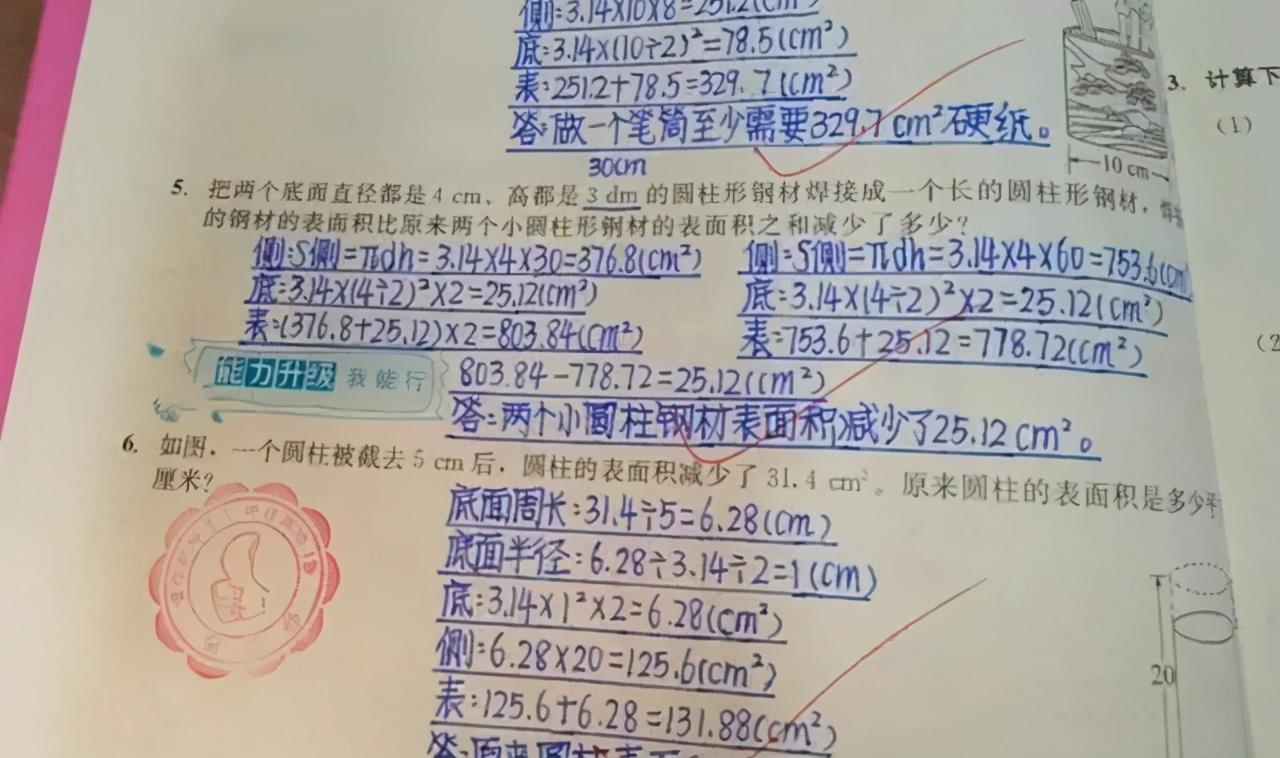 侧:3.14×10×8=251.2(cm²)
底:3.14×(10÷2)²=78.5(cm²)
表:251.2+78.5=329.7(cm²)
答:做一个笔筒至少需要329.7cm²硬纸。
10 cm
3. 计算下
(1)
30cm
5. 把两个底面直径都是 4 cm、高都是 3 dm 的圆柱形钢材焊接成一个长的圆柱形钢材,
的钢材的表面积比原来两个小圆柱形钢材的表面积之和减少了多少?
侧:S侧=πdh=3.14×4×30=376.8(cm²)
底:3.14×(4÷2)²×2=25.12(cm²)
表:(376.8+25.12)×2=803.84(cm²)
侧:S侧=πdh=3.14×4×60=753.6(cm
底:3.14×(4÷2)²×2=25.12(cm²)
表:753.6+25.12=778.72(cm²)
(2
能力升级 我能行
803.84-778.72=25.12(cm²)
答:两个小圆柱钢材表面积减少了25.12cm²。
6. 如图,一个圆柱被截去 5 cm 后,圆柱的表面积减少了 31.4 cm²。原来圆柱的表面积是多少平
厘米?
底面周长:31.4÷5=6.28(cm)
底面半径:6.28÷3.14÷2=1(cm)
底:3.14×1²×2=6.28(cm²)
侧:6.28×20=125.6(cm²)
表:125.6+6.28=131.88(cm²)
答:原来圆柱表
20